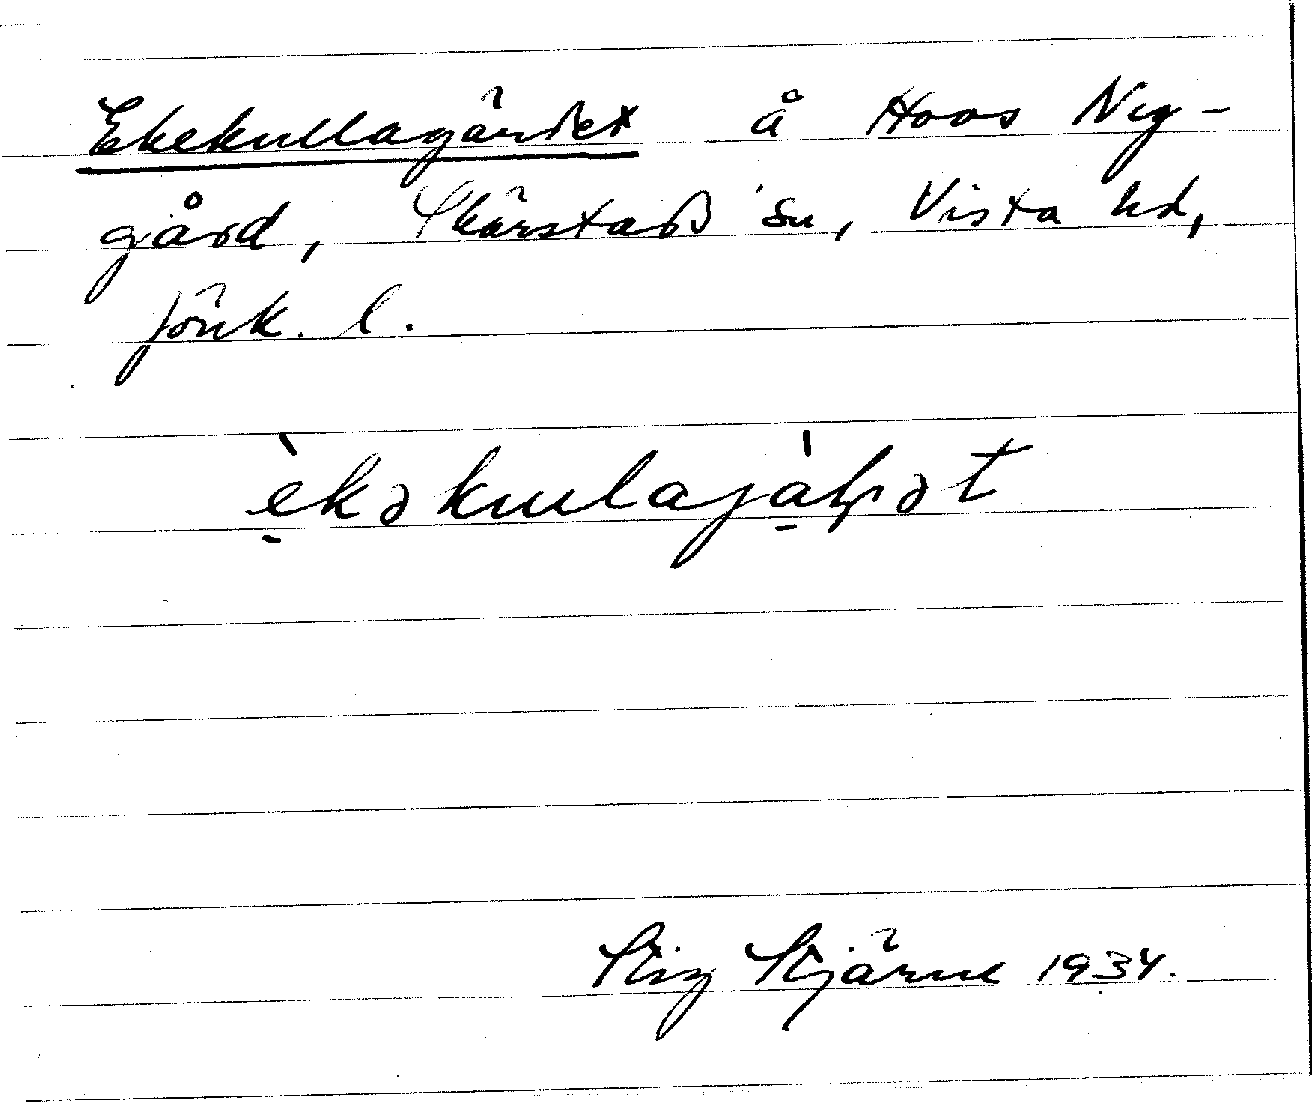 Ekekullagärdet å Hoos Nyg-
gård, Skärstad sn, Vista hd,
Jönk. l.
è̠kəkullajà̠ḷɾət
Stig Stjärne 1934.